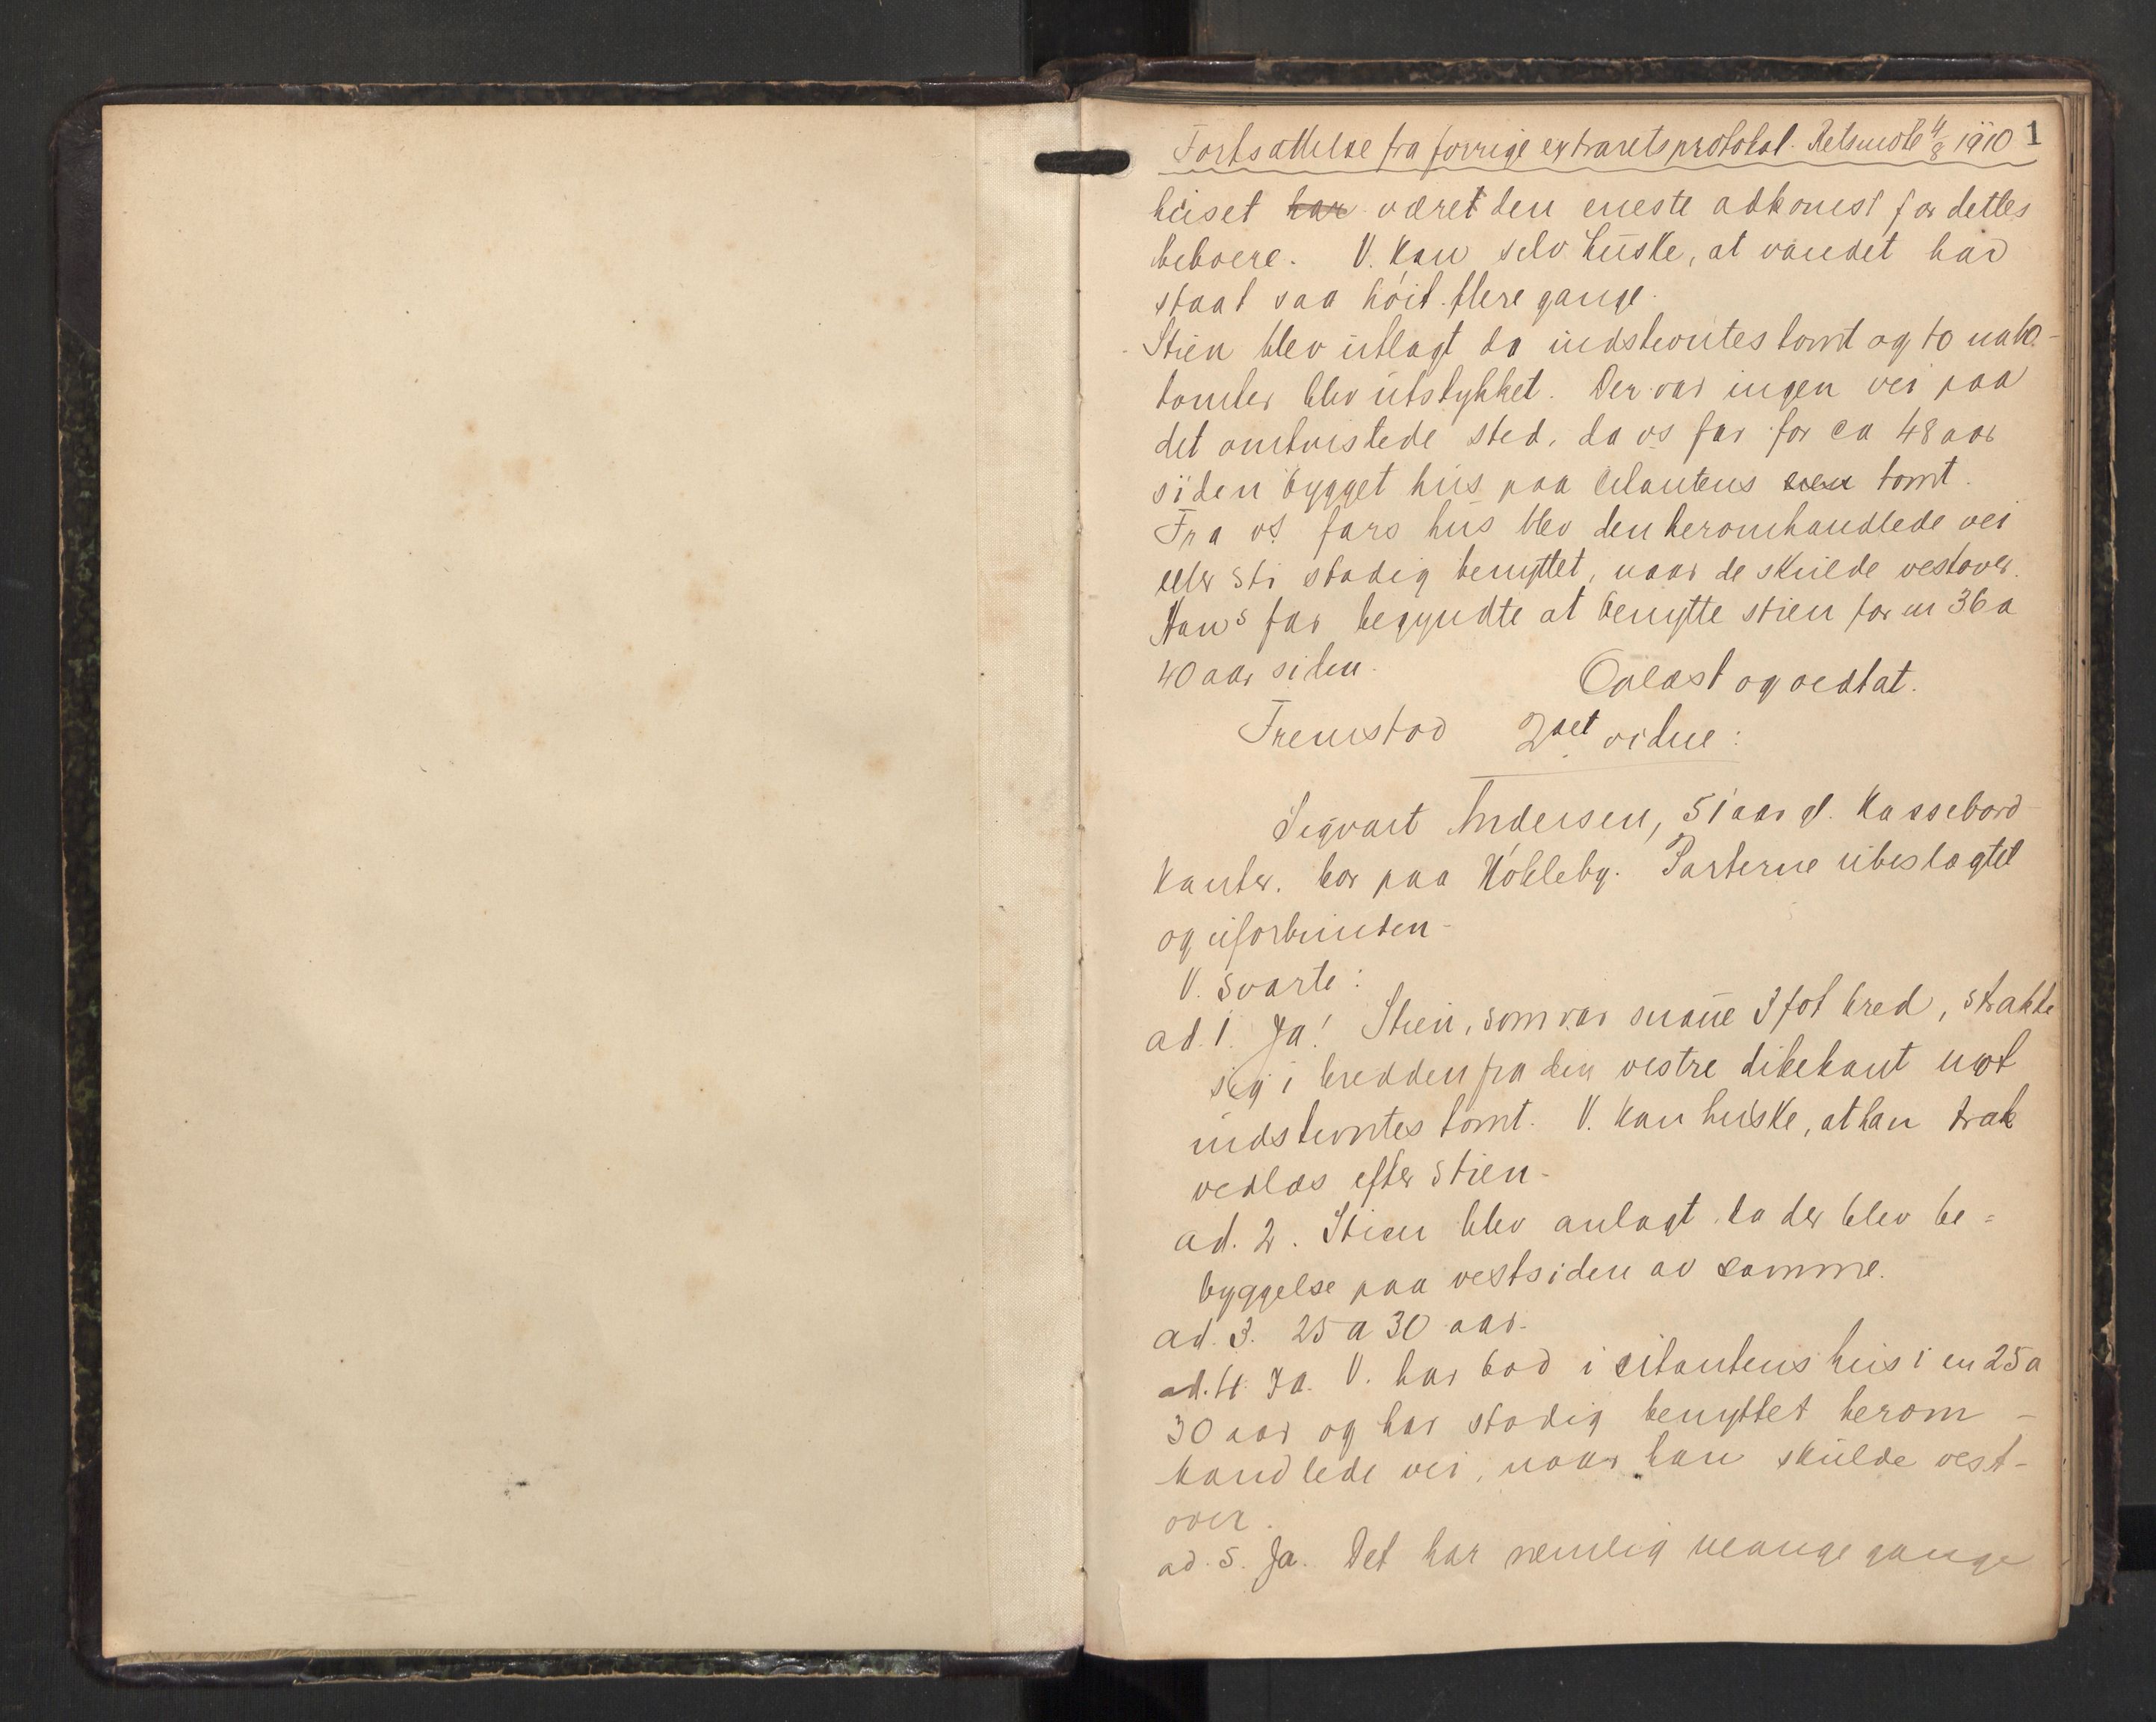 Fortsættelse fra forrige extraretsprotokol. Retsmøte 4/8 1910 1
huset har været den eneste adkomst for dettes
beboere. V. kan selv huske, at vandet har
staat saa høit flere gange.
Stien blev utlagt da indstevntes tomt og to nabo-
tomter blev utstykket. Der var ingen vei paa
det omtvistede sted, da vs far for ca 48 aar
siden bygget hus paa citantens tomt.
Fra vs fars hus blev den heromhandlede vei
eller sti stadig benyttet, naar de skulde vestover.
Hans far begyndte at benytte stien for en 36 a
40 aar siden.
Oplæst og vedtat.
Fremstod 2det vidne:
Sigvart Andersen, 51 aar gl. Kassebord
kanter. bor paa Kobleby. Parterne ubeslægtet
og uforbunden-
V. svarte:
ad. 1. Ja! Stien, som var snaue 3 fot bred, strakte
sig i bredden fra den vestre dikekant mot
indstevntes tomt. V. kan huske, at han trak
vedlas efter stien-
ad. 2. Stien blev anlagt da der blev be=
byggelse paa vestsiden av samme.
ad. 3. 25 a 30 aar.
ad. 4. Ja. V. har bod i citantens hus i en 25 a
30 aar og har stadig benyttet herom-
handlede vei, naar han skulde vest-
over.
ad. 5. Ja. Det har nemlig mange gange